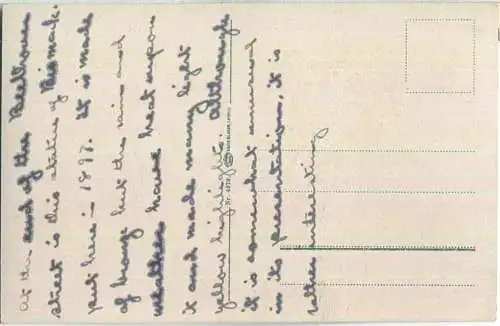 At the end of the Beethoven
street is this statue of Bismark.
put here in 1897. It is made
of bronze but the rains and
weather have beat upon
it and made many light
yellow highlights. Although
it is somewhat unusual
in its presentation, it is
rather interesting